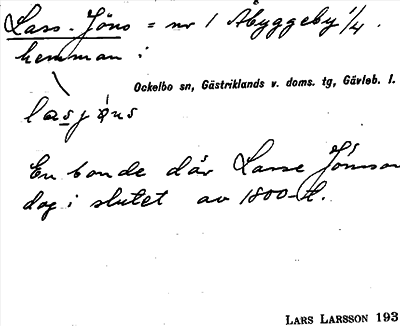 Lars-Jöns = nr 1 Åbyggeby 1/4
hemman i
Ockelbo sn, Gästriklands v. doms. tg, Gävleb. l.
lasjöns
En bonde där Lasse Jönsson
dog i slutet av 1800-t.
LARS LARSSON 193